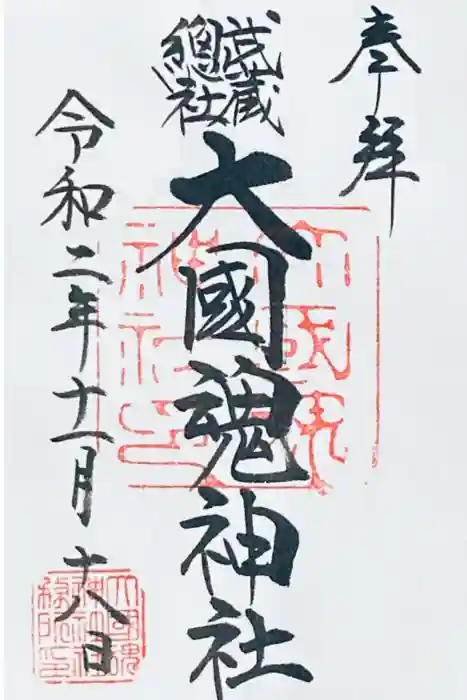 奉拝
武蔵
總社
大國魂神社
令和二年十一月十八日
大國魂
神社印